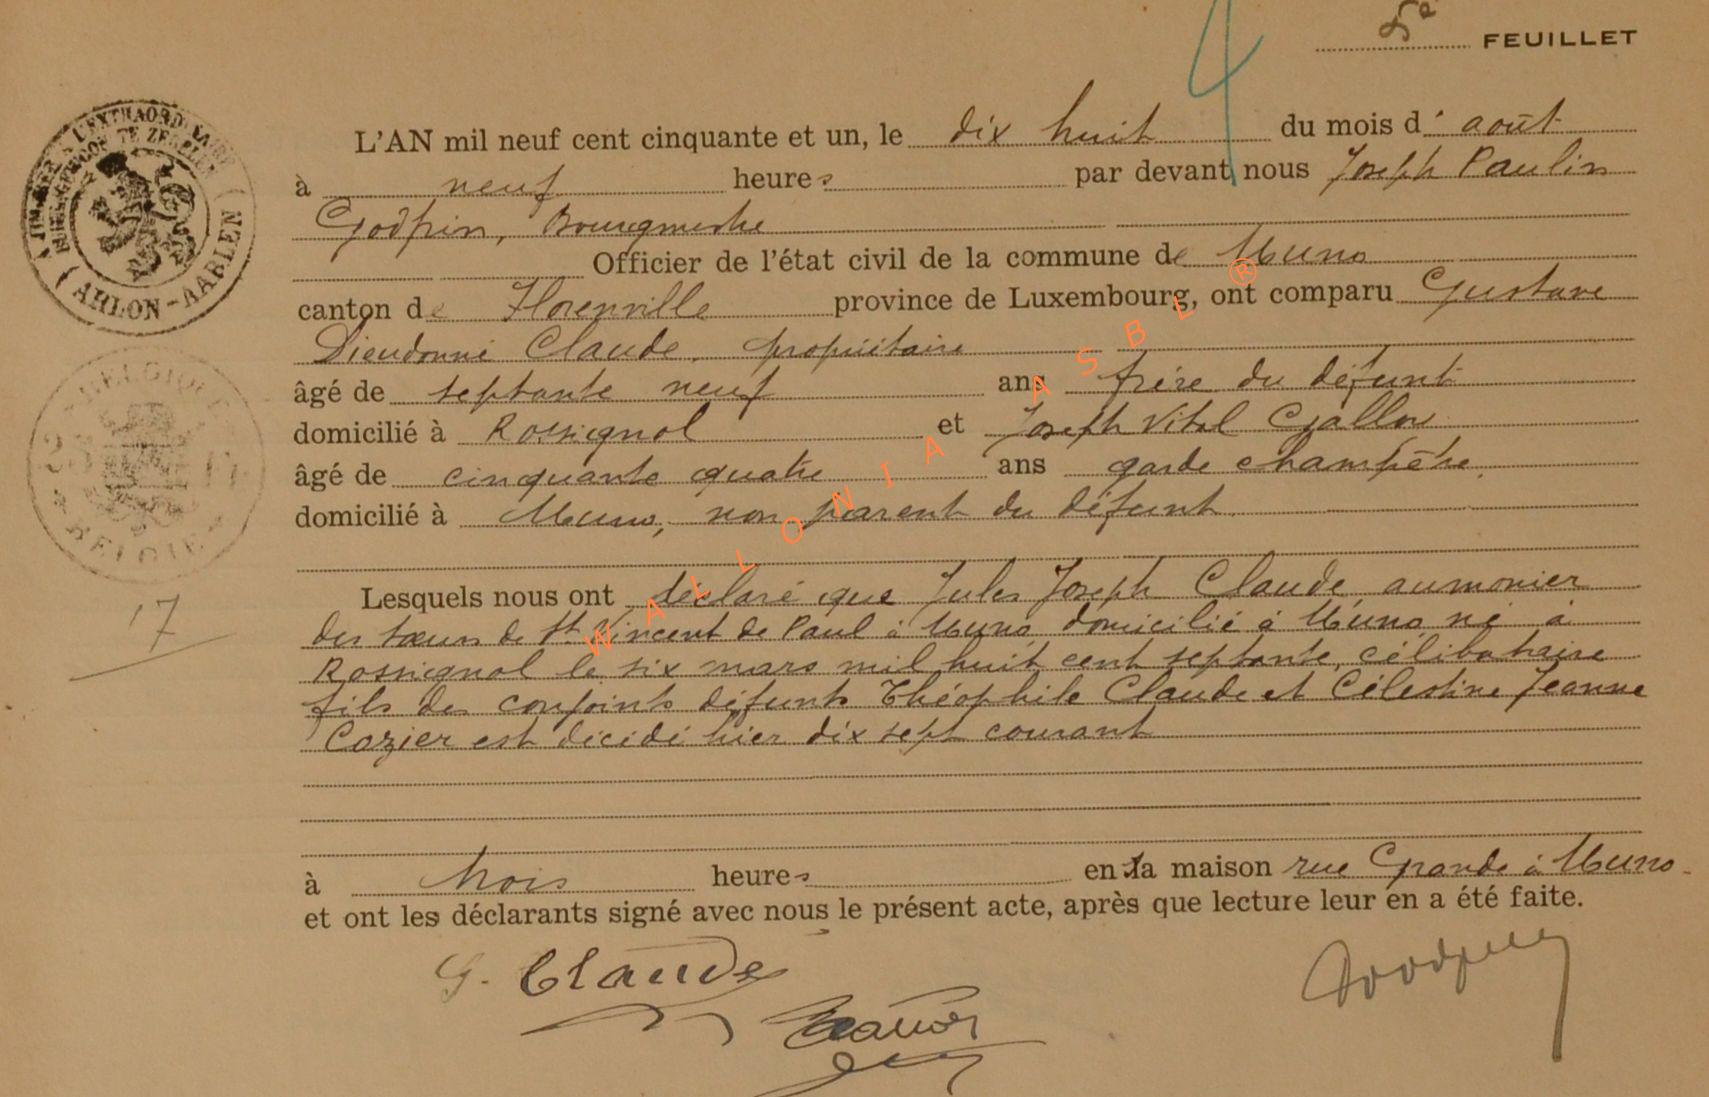 4
FEUILLET
L'AN mil neuf cent cinquante et un, le dix huit du mois d'août
à neuf heures par devant nous Joseph Paulin
Godfrin, Bourgmestre
Officier de l'état civil de la commune de Muno
canton de Florenville province de Luxembourg, ont comparu Gustave
Dieudonné Claude, propriétaire
âgé de septante neuf ans frère du défunt
domicilié à Rossignol et Joseph Vital
âgé de cinquante quatre ans garde champêtre,
domicilié à Muno, non parent du défunt.
Lesquels nous ont déclaré que Jules Joseph Claude aumonier
des sœurs de St Vincent de Paul à Muno, domicilié à Muno né à
Rossignol le six mars mil huit cent septante, célibataire
fils des conjoints défunts Théophile Claude et Célestine Jeanne
Cozier est décédé hier dix sept courant
à trois heures en la maison rue Grande à Muno.
et ont les déclarants signé avec nous le présent acte, après que lecture leur en a été faite.
G. Claude
17
ARLON - AARLEN
BELGIQUE
BELGIE
WALLONIA ASBL ®